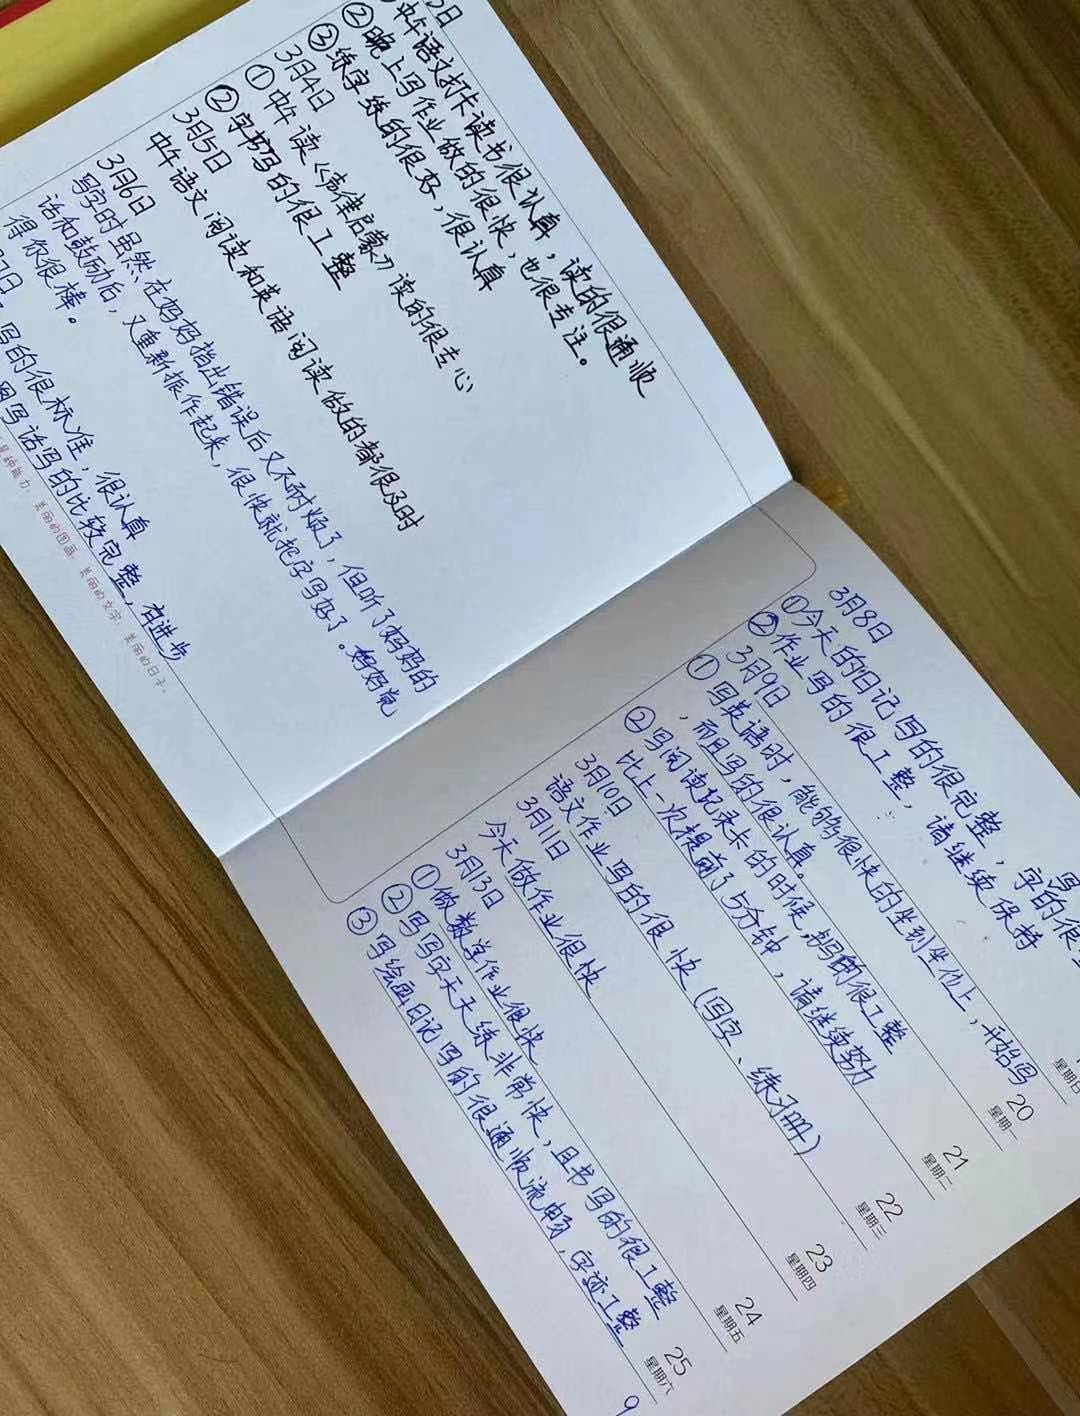 中午语文打卡读书很认真，读的很通顺
②晚上写作业做的很快，也很专注。
③练字练的很好，很认真
3月4日
①中午读《声律启蒙》读的很专心
②字书写的很工整
3月5日
中午语文阅读和英语阅读做的都很及时
3月6日
写字时虽然在妈妈指出错误后又不耐烦了，但听了妈妈的
话和鼓励后，又重新振作起来，很快就把字写好了。妈妈觉
得你很棒。
写的很标准，很认真
写话写的比较完整，有进步
美丽的图画，美丽的文字，美丽的日子。
3月8日
①今天的日记写的很完整，字的很
②作业写的很工整，请继续保持
3月9日
①写英语时，能够很快的坐到坐位上，开始写
，而且写的很认真。
②写阅读记录卡的时候，书写的很工整
比上一次提前了5分钟，请继续努力
3月10日
语文作业写的很快（写字、练习册）
3月11日
今天做作业很快
3月13日
①做数学作业很快
②写写字天天练非常快，且书写的很工整
③写绘画日记写的很通顺流畅，字迹工整
星期日
20
星期一
21
星期二
22
星期三
23
星期四
24
星期五
25
星期六
9